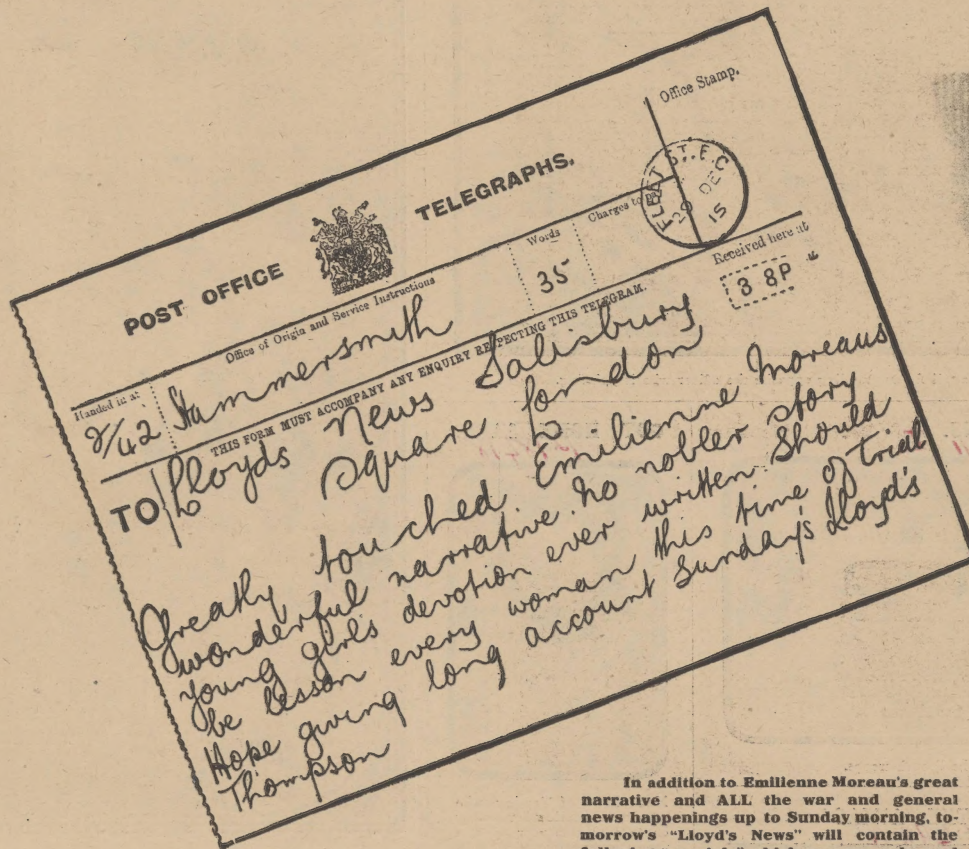 Office Stamp.
POST OFFICE TELEGRAPHS.
FLEET ST. E.C
29 DEC
15
Office of Origin and Service Instructions
Words
Charges to
Handed in at
Hammersmith
35
Received here at
8 8P
THIS FORM MUST ACCOMPANY ANY ENQUIRY RESPECTING THIS TELEGRAM.
TO Lloyds News Salisbury
Square London
Greatly touched Emilienne Moreaus
wonderful narrative. No nobler story
young girls devotion ever written Should
be lesson every woman this time of trial
Hope giving long account Sunday's Lloyd's
Thompson
In addition to Emilienne Moreau's great
narrative and ALL the war and general
news happenings up to Sunday morning, to-
morrow's "Lloyd's News" will contain the